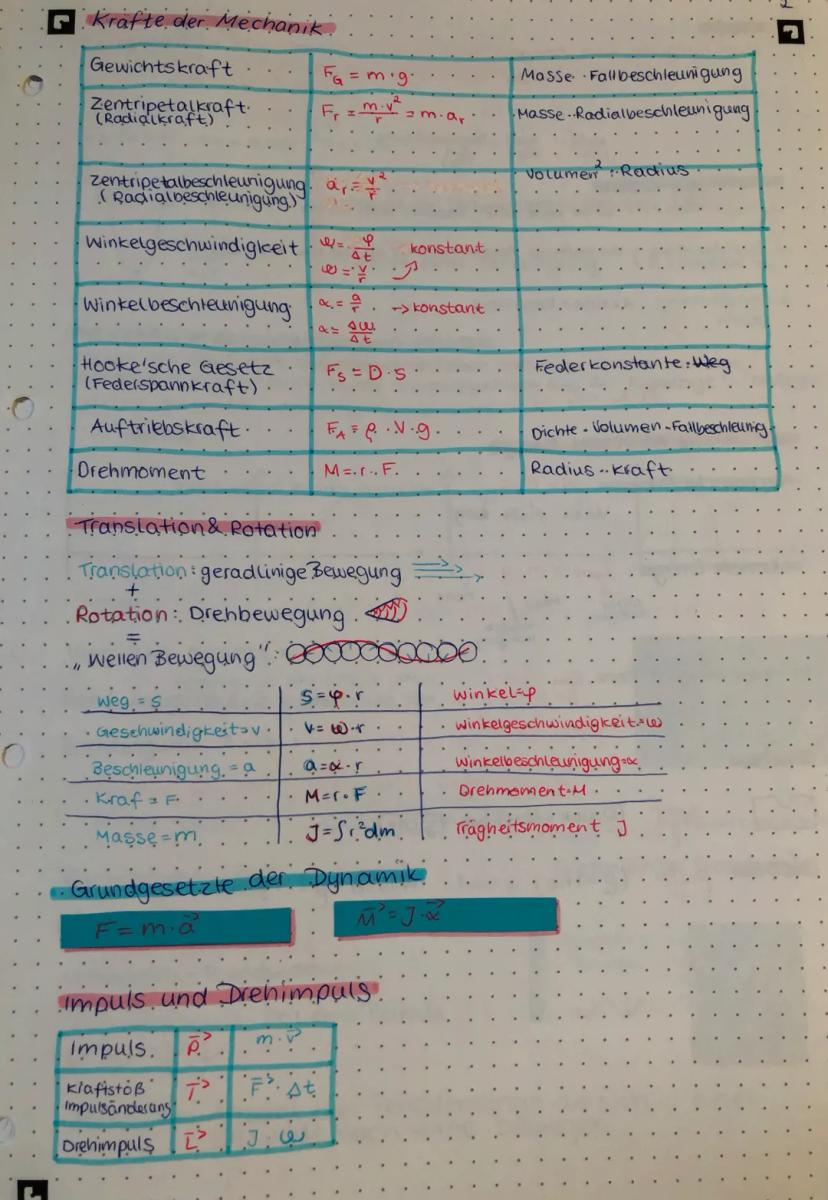 2
Kräfte der Mechanik
Gewichtskraft F_G = m · g Masse · Fallbeschleunigung
Zentripetalkraft F_r = m·v²/r = m · a_r Masse · Radialbeschleunigung
(Radialkraft)
Zentripetalbeschleunigung a_r = v²/r Volumen² : Radius
(Radialbeschleunigung)
Winkelgeschwindigkeit ω = φ/Δt konstant
ω = v/r
Winkelbeschleunigung α = a/r → konstant
α = Δω/Δt
Hooke'sche Gesetz F_S = D · s Federkonstante · Weg
(Federspannkraft)
Auftriebskraft F_A = ρ · V · g Dichte · Volumen · Fallbeschleunig
Drehmoment M = r · F Radius · Kraft
Translation & Rotation
Translation: geradlinige Bewegung
+
Rotation: Drehbewegung
=
„Wellen Bewegung":
Weg = s s = φ · r Winkel = φ
Geschwindigkeit = v v = ω · r Winkelgeschwindigkeit = ω
Beschleunigung = a a = α · r Winkelbeschleunigung = α
Kraf = F M = r · F Drehmoment = M
Masse = m J = ∫r²dm Trägheitsmoment J
Grundgesetzte der Dynamik
F = m · a⃗ M⃗ = J · α⃗
Impuls und Drehimpuls
Impuls p⃗ m · v⃗
Kraftstoß I⃗ F⃗ · Δt
Impulsänderung
Drehimpuls L⃗ J · ω